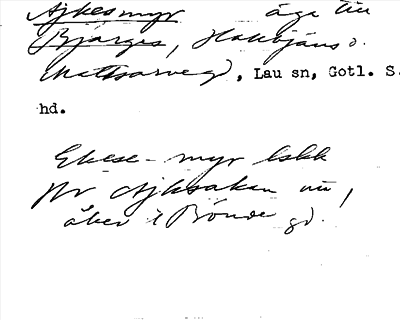 Ajkesmyr äga till
Bjärges, Hallbjäns o.
Mattsarvegd, Lau sn, Gotl. S.
hd.
Ekese-myr lskk
Nr Ajksakan nu,
åker i Bönde gd.